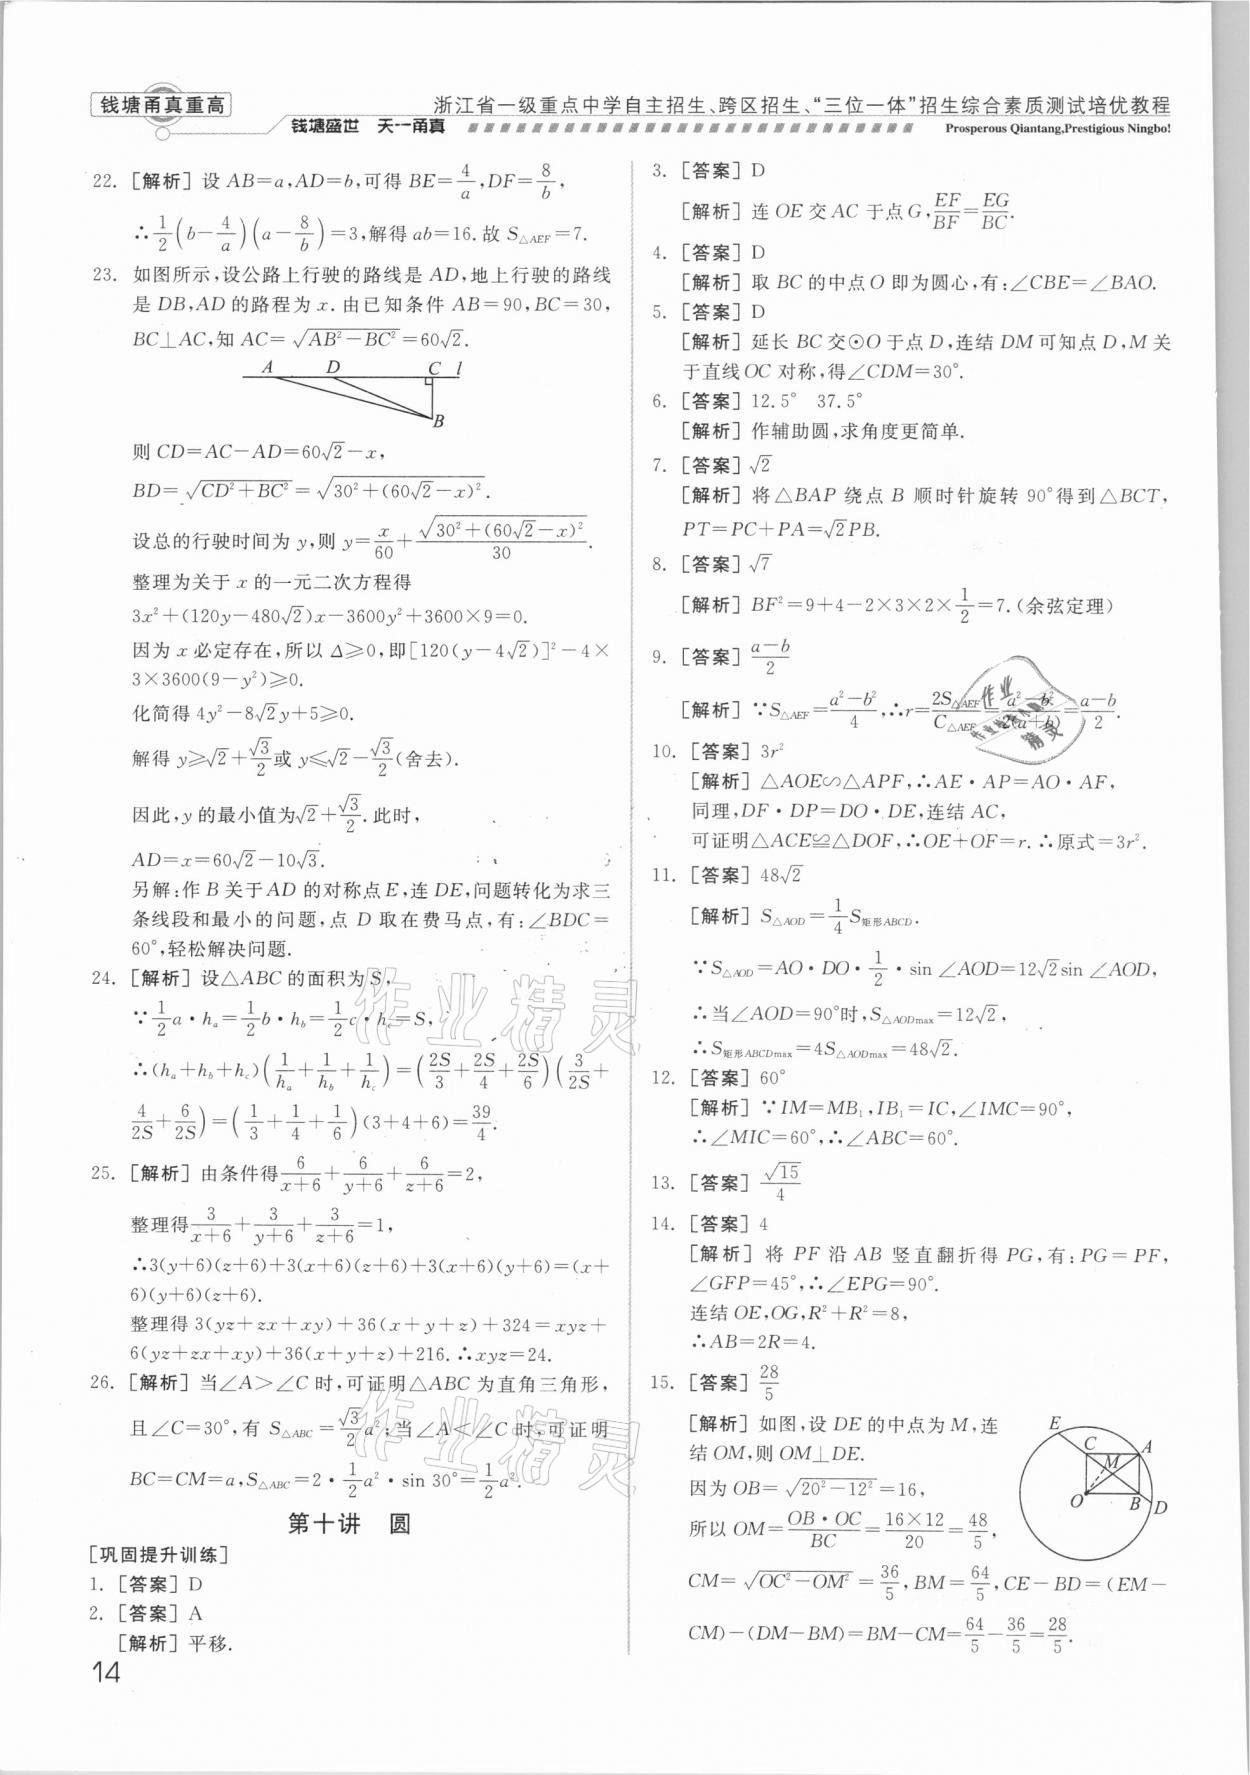 钱塘甬真重高
浙江省一级重点中学自主招生、跨区招生、“三位一体”招生综合素质测试培优教程
钱塘盛世 天一甬真
Prosperous Qiantang,Prestigious Ningbo!
22. [解析]设 AB=a,AD=b,可得 BE=4/a,DF=8/b,
∴1/2(b-4/a)(a-8/b)=3,解得 ab=16.故 S△AEF=7.
23. 如图所示,设公路上行驶的路线是 AD,地上行驶的路线
是 DB,AD 的路程为 x.由已知条件 AB=90,BC=30,
BC⊥AC,知 AC=√(AB²-BC²)=60√2.
A D C l
B
则 CD=AC-AD=60√2-x,
BD=√(CD²+BC²)=√(30²+(60√2-x)²).
设总的行驶时间为 y,则 y=x/60+√(30²+(60√2-x)²)/30.
整理为关于 x 的一元二次方程得
3x²+(120y-480√2)x-3600y²+3600×9=0.
因为 x 必定存在,所以 Δ≥0,即[120(y-4√2)]²-4×
3×3600(9-y²)≥0.
化简得 4y²-8√2y+5≥0.
解得 y≥√2+√3/2或 y≤√2-√3/2(舍去).
因此,y 的最小值为√2+√3/2.此时,
AD=x=60√2-10√3.
另解:作 B 关于 AD 的对称点 E,连 DE,问题转化为求三
条线段和最小的问题,点 D 取在费马点,有:∠BDC=
60°,轻松解决问题.
24. [解析]设△ABC 的面积为 S,
∵1/2a·hₐ=1/2b·h_b=1/2c·h_c=S,
∴(hₐ+h_b+h_c)(1/hₐ+1/h_b+1/h_c)=(2S/3+2S/4+2S/6)(3/2S+
4/2S+6/2S)=(1/3+1/4+1/6)(3+4+6)=39/4.
25. [解析]由条件得6/(x+6)+6/(y+6)+6/(z+6)=2,
整理得3/(x+6)+3/(y+6)+3/(z+6)=1,
∴3(y+6)(z+6)+3(x+6)(z+6)+3(x+6)(y+6)=(x+
6)(y+6)(z+6).
整理得 3(yz+zx+xy)+36(x+y+z)+324=xyz+
6(yz+zx+xy)+36(x+y+z)+216.∴xyz=24.
26. [解析]当∠A>∠C 时,可证明△ABC 为直角三角形,
且∠C=30°,有 S△ABC=√3/2a²;当∠A<∠C 时,可证明
BC=CM=a,S△ABC=2·1/2a²·sin 30°=1/2a².
第十讲 圆
[巩固提升训练]
1. [答案]D
2. [答案]A
[解析]平移.
14
3. [答案]D
[解析]连 OE 交 AC 于点 G,EF/BF=EG/BC.
4. [答案]D
[解析]取 BC 的中点 O 即为圆心,有:∠CBE=∠BAO.
5. [答案]D
[解析]延长 BC 交⊙O 于点 D,连结 DM 可知点 D,M 关
于直线 OC 对称,得∠CDM=30°.
6. [答案]12.5° 37.5°
[解析]作辅助圆,求角度更简单.
7. [答案]√2
[解析]将△BAP 绕点 B 顺时针旋转 90°得到△BCT,
PT=PC+PA=√2PB.
8. [答案]√7
[解析]BF²=9+4-2×3×2×1/2=7.(余弦定理)
9. [答案](a-b)/2
[解析]∵S△AEF=(a²-b²)/4,∴r=2S△AEF/C△AEF=(a²-b²)/2(a+b)=(a-b)/2.
10. [答案]3r²
[解析]△AOE∽△APF,∴AE·AP=AO·AF,
同理,DF·DP=DO·DE,连结 AC,
可证明△ACE≌△DOF,∴OE+OF=r.∴原式=3r².
11. [答案]48√2
[解析]S△AOD=1/4S矩形ABCD.
∵S△AOD=AO·DO·1/2·sin ∠AOD=12√2sin ∠AOD,
∴当∠AOD=90°时,S△AODmax=12√2,
∴S矩形ABCDmax=4S△AODmax=48√2.
12. [答案]60°
[解析]∵IM=MB₁,IB₁=IC,∠IMC=90°,
∴∠MIC=60°,∴∠ABC=60°.
13. [答案]√15/4
14. [答案]4
[解析]将 PF 沿 AB 竖直翻折得 PG,有:PG=PF,
∠GFP=45°,∴∠EPG=90°.
连结 OE,OG,R²+R²=8,
∴AB=2R=4.
15. [答案]28/5
[解析]如图,设 DE 的中点为 M,连
结 OM,则 OM⊥DE.
因为 OB=√(20²-12²)=16,
所以 OM=OB·OC/BC=16×12/20=48/5,
E
C A
M
O B D
CM=√(OC²-OM²)=36/5,BM=64/5,CE-BD=(EM-
CM)-(DM-BM)=BM-CM=64/5-36/5=28/5.
作业精灵
作业精灵
作业
精灵